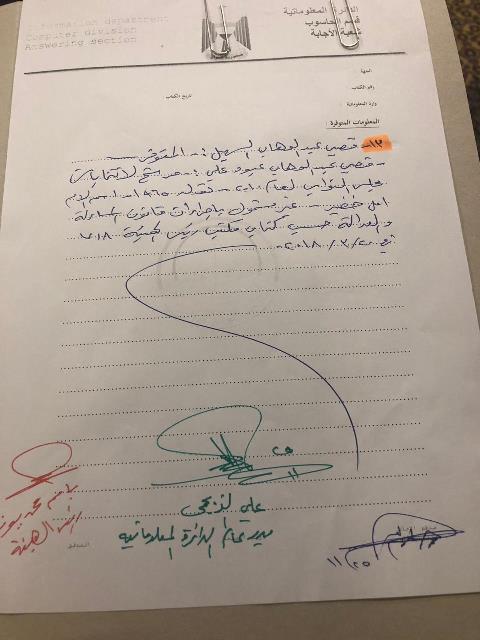 Information department
Computer division
Answering section
الدائرة المعلوماتية
قسم الحاسوب
شعبة الأجابة
الجهة
رقم الكتاب
تاريخ الكتاب
وارد المعلوماتية
المعلومات المتوفرة
١٢- قصي عبد الوهاب السهيل :- المتوفر
- قصي عبد الوهاب عبود علي :- مرشح لانتخابات
مجلس النواب لعام ٢٠١٠ -
- غير مشمول باجراءات قانون المساءلة
والعدالة حسب كتاب مكتب رئيس الهيئة ١٠١٨
٢٠١٨/٣/
٢٥
١١
علي
مدير عام الدائرة المعلوماتية
باسم محمد يونس
رئيس الهيئة
١١/٢٥